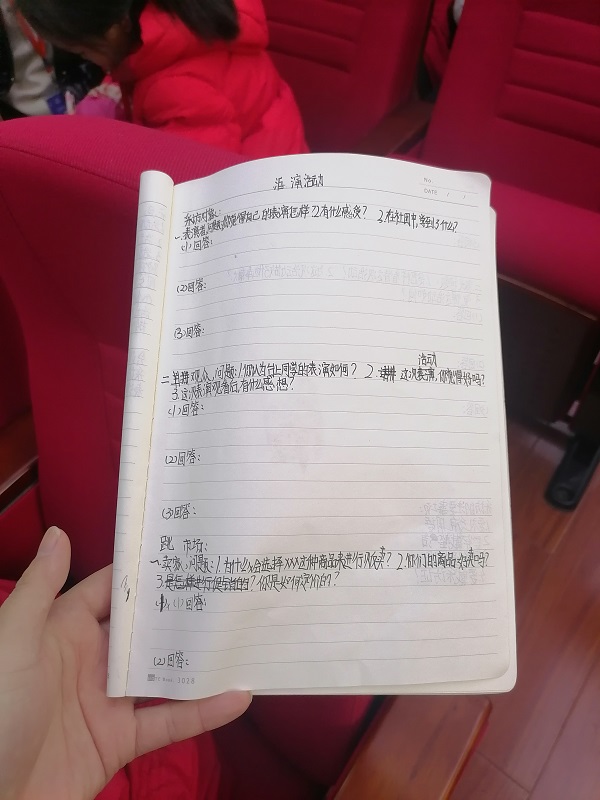 汇演活动
No.
DATE / /
采访对象:
一.表演者,问题:1.你觉得自己的表演怎样?有什么感受? 2.在社团中,学到了什么?
(1)回答:
(2)回答:
(3)回答:
活动
二 观众,问题:1.你认为台上同学的表演如何? 2. 这次表演,你觉得好吗?
3.这次表演观看后,有什么感想?
(1)回答:
(2)回答:
(3)回答:
跳 市场:
一.卖家,问题:1.为什么会选择xxx这种商品来进行贩卖? 2.你们的商品好卖吗?
3.是怎样进行促销的?你是如何定价的?
(1)回答:
(2)回答:
3028